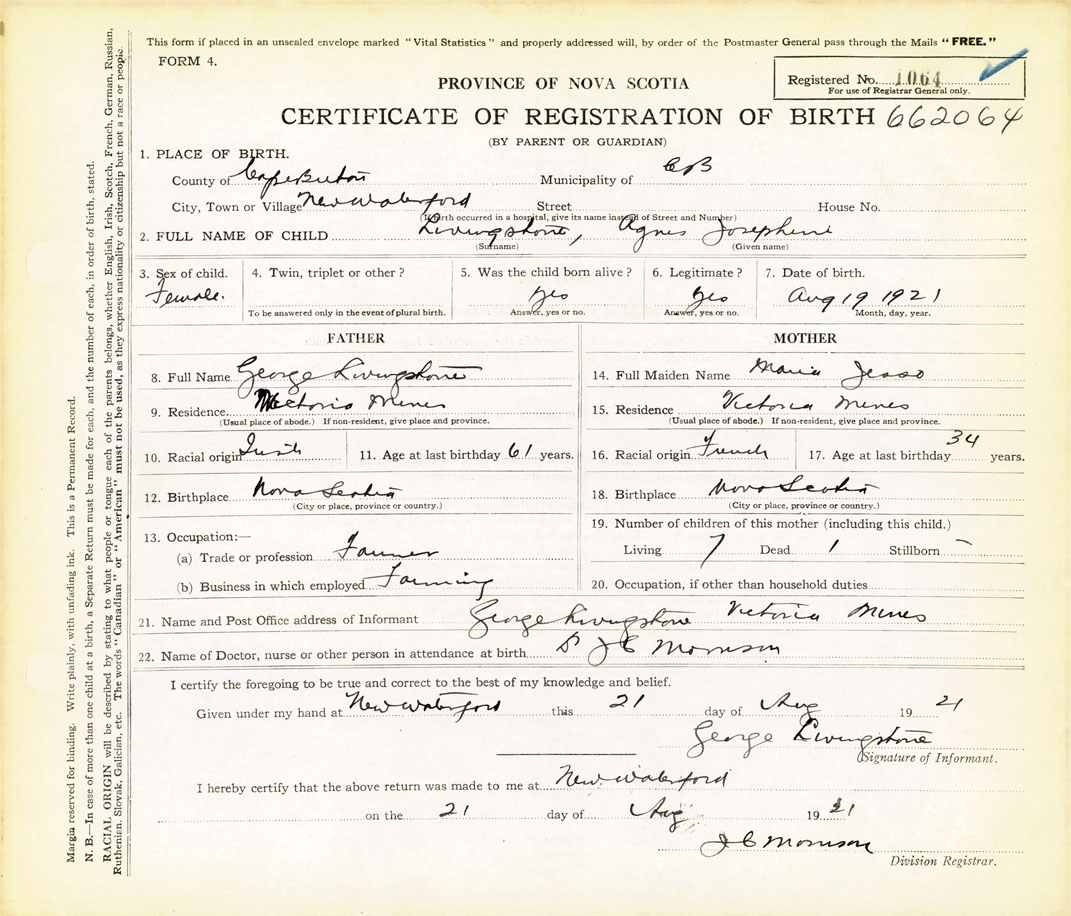 This form if placed in an unsealed envelope marked "Vital Statistics" and properly addressed will, by order of the Postmaster General pass through the Mails "FREE."
FORM 4.
Registered No. 1064
For use of Registrar General only.
PROVINCE OF NOVA SCOTIA
CERTIFICATE OF REGISTRATION OF BIRTH 662064
(BY PARENT OR GUARDIAN)
1. PLACE OF BIRTH.
County of Cape Breton Municipality of CB
City, Town or Village New Waterford Street House No.
(If birth occurred in a hospital, give its name instead of Street and Number)
2. FULL NAME OF CHILD Livingstone, Agnes Josephine
(Surname) (Given name)
3. Sex of child. 4. Twin, triplet or other? 5. Was the child born alive? 6. Legitimate? 7. Date of birth.
Female. Yes Yes Aug 19 1921
To be answered only in the event of plural birth. Answer, yes or no. Answer, yes or no. Month, day, year.
FATHER MOTHER
8. Full Name George Livingstone 14. Full Maiden Name Maria Jesso
9. Residence Victoria Mines 15. Residence Victoria Mines
(Usual place of abode.) If non-resident, give place and province. (Usual place of abode.) If non-resident, give place and province.
10. Racial origin Irish 11. Age at last birthday 61 years. 16. Racial origin French 17. Age at last birthday 34 years.
12. Birthplace Nova Scotia 18. Birthplace Nova Scotia
(City or place, province or country.) (City or place, province or country.)
13. Occupation:— 19. Number of children of this mother (including this child.)
(a) Trade or profession Farmer Living 7 Dead 1 Stillborn –
(b) Business in which employed Farming 20. Occupation, if other than household duties
21. Name and Post Office address of Informant George Livingstone Victoria Mines
22. Name of Doctor, nurse or other person in attendance at birth Dr J C Morrison
I certify the foregoing to be true and correct to the best of my knowledge and belief.
Given under my hand at New Waterford this 21 day of Aug 19 21
George Livingstone
Signature of Informant.
I hereby certify that the above return was made to me at New Waterford
on the 21 day of Aug 19 21
J C Morrison
Division Registrar.
Margin reserved for binding. Write plainly, with unfading ink. This is a Permanent Record.
N. B.—In case of more than one child at a birth, a Separate Return must be made for each, and the number of each, in order of birth, stated.
RACIAL ORIGIN will be described by stating to what people or tongue each of the parents belongs, whether English, Irish, Scotch, French, German, Russian,
Ruthenian, Slovak, Galician, etc. The words "Canadian" or "American" must not be used, as they express nationality or citizenship but not a race or people.